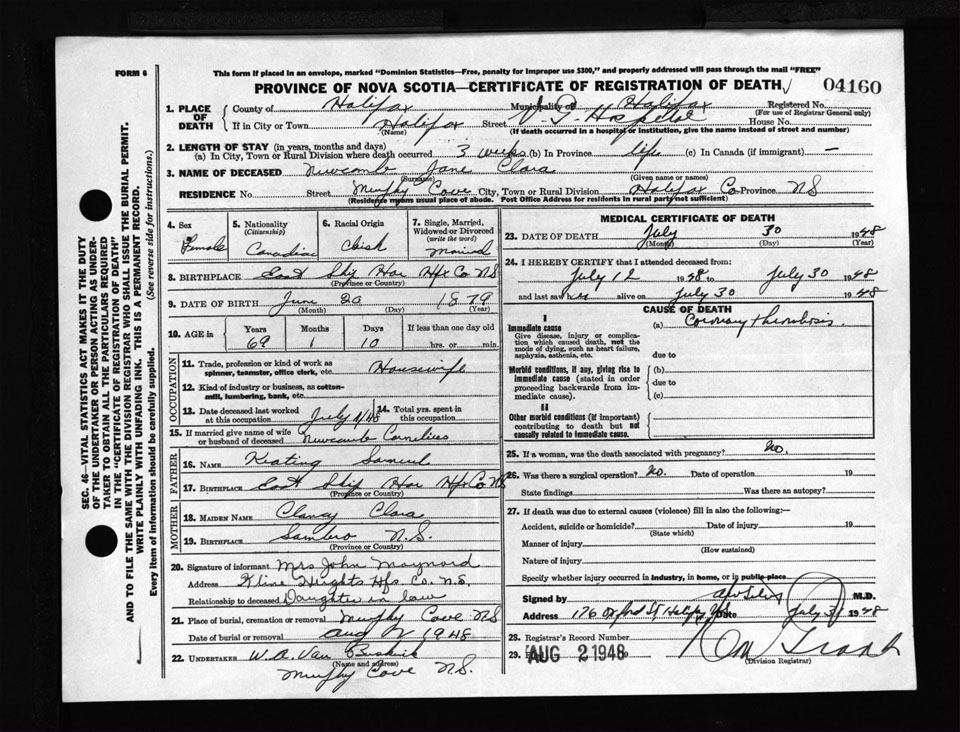 FORM 6
This form if placed in an envelope, marked "Dominion Statistics—Free, penalty for improper use $300," and properly addressed will pass through the mail "FREE"
PROVINCE OF NOVA SCOTIA—CERTIFICATE OF REGISTRATION OF DEATH
04160
1. PLACE OF DEATH
County of Halifax Municipality of Halifax Registered No.
(For use of Registrar General only)
If in City or Town Halifax Street V. G. Hospital House No.
(Name) (If death occurred in a hospital or institution, give the name instead of street and number)
2. LENGTH OF STAY (in years, months and days)
(a) In City, Town or Rural Division where death occurred 3 weeks (b) In Province life (c) In Canada (if immigrant) —
3. NAME OF DECEASED Newcomb Jane Clara
(Surname) (Given name or names)
RESIDENCE No. Street Murphy Cove City, Town or Rural Division Halifax Co Province NS
(Residence means usual place of abode. Post Office Address for residents in rural parts not sufficient)
4. Sex
Female
5. Nationality
(Citizenship)
Canadian
6. Racial Origin
7. Single, Married, Widowed or Divorced
(write the word)
Married
8. BIRTHPLACE East Ship Har Hfx Co NS
(Province or Country)
9. DATE OF BIRTH June 20 1879
(Month) (Day) (Year)
10. AGE in
Years Months Days If less than one day old
69 1 10 hrs. or min.
OCCUPATION
11. Trade, profession or kind of work as spinner, teamster, office clerk, etc. Housewife
12. Kind of industry or business, as cotton-mill, lumbering, bank, etc.
13. Date deceased last worked at this occupation July 1/48
14. Total yrs. spent in this occupation
15. If married give name of wife or husband of deceased Newcomb Cornelius
FATHER
16. NAME Keating Samuel
17. BIRTHPLACE East Ship Har Hfx Co NS
(Province or Country)
MOTHER
18. MAIDEN NAME Clancy Clara
19. BIRTHPLACE Sambro N.S.
(Province or Country)
20. Signature of informant Mrs John Maynard
Address Kline Heights Hfx. Co. N.S.
Relationship to deceased Daughter in law
21. Place of burial, cremation or removal Murphy Cove NS
Date of burial or removal Aug 2 1948
22. UNDERTAKER W. A. Van Buskirk
(Name and address)
Murphy Cove N.S.
MEDICAL CERTIFICATE OF DEATH
23. DATE OF DEATH July 30 1948
(Month) (Day) (Year)
24. I HEREBY CERTIFY that I attended deceased from:
July 12 1948 to July 30 1948
and last saw her alive on July 30 1948
CAUSE OF DEATH
I
Immediate cause
Give disease, injury or complication which caused death, not the mode of dying, such as heart failure, asphyxia, asthenia, etc.
(a) Coronary thrombosis.
due to
Morbid conditions, if any, giving rise to immediate cause (stated in order proceeding backwards from immediate cause).
(b)
due to
(c)
II
Other morbid conditions (if important) contributing to death but not causally related to immediate cause.
25. If a woman, was the death associated with pregnancy? No.
26. Was there a surgical operation? No. Date of operation 19
State findings Was there an autopsy?
27. If death was due to external causes (violence) fill in also the following:—
Accident, suicide or homicide? Date of injury 19
(State which)
Manner of injury
(How sustained)
Nature of injury
Specify whether injury occurred in industry, in home, or in public place
Signed by M.D.
Address 176 Oxford St Halifax NS Date July 31 1948
28. Registrar's Record Number
29. AUG 2 1948
(Division Registrar)
SEC. 46—VITAL STATISTICS ACT MAKES IT THE DUTY
OF THE UNDERTAKER OR PERSON ACTING AS UNDER-
TAKER TO OBTAIN ALL THE PARTICULARS REQUIRED
IN THE "CERTIFICATE OF REGISTRATION OF DEATH"
AND TO FILE THE SAME WITH THE DIVISION REGISTRAR WHO SHALL ISSUE THE BURIAL PERMIT.
WRITE PLAINLY WITH UNFADING INK. THIS IS A PERMANENT RECORD.
Every item of information should be carefully supplied. (See reverse side for instructions.)